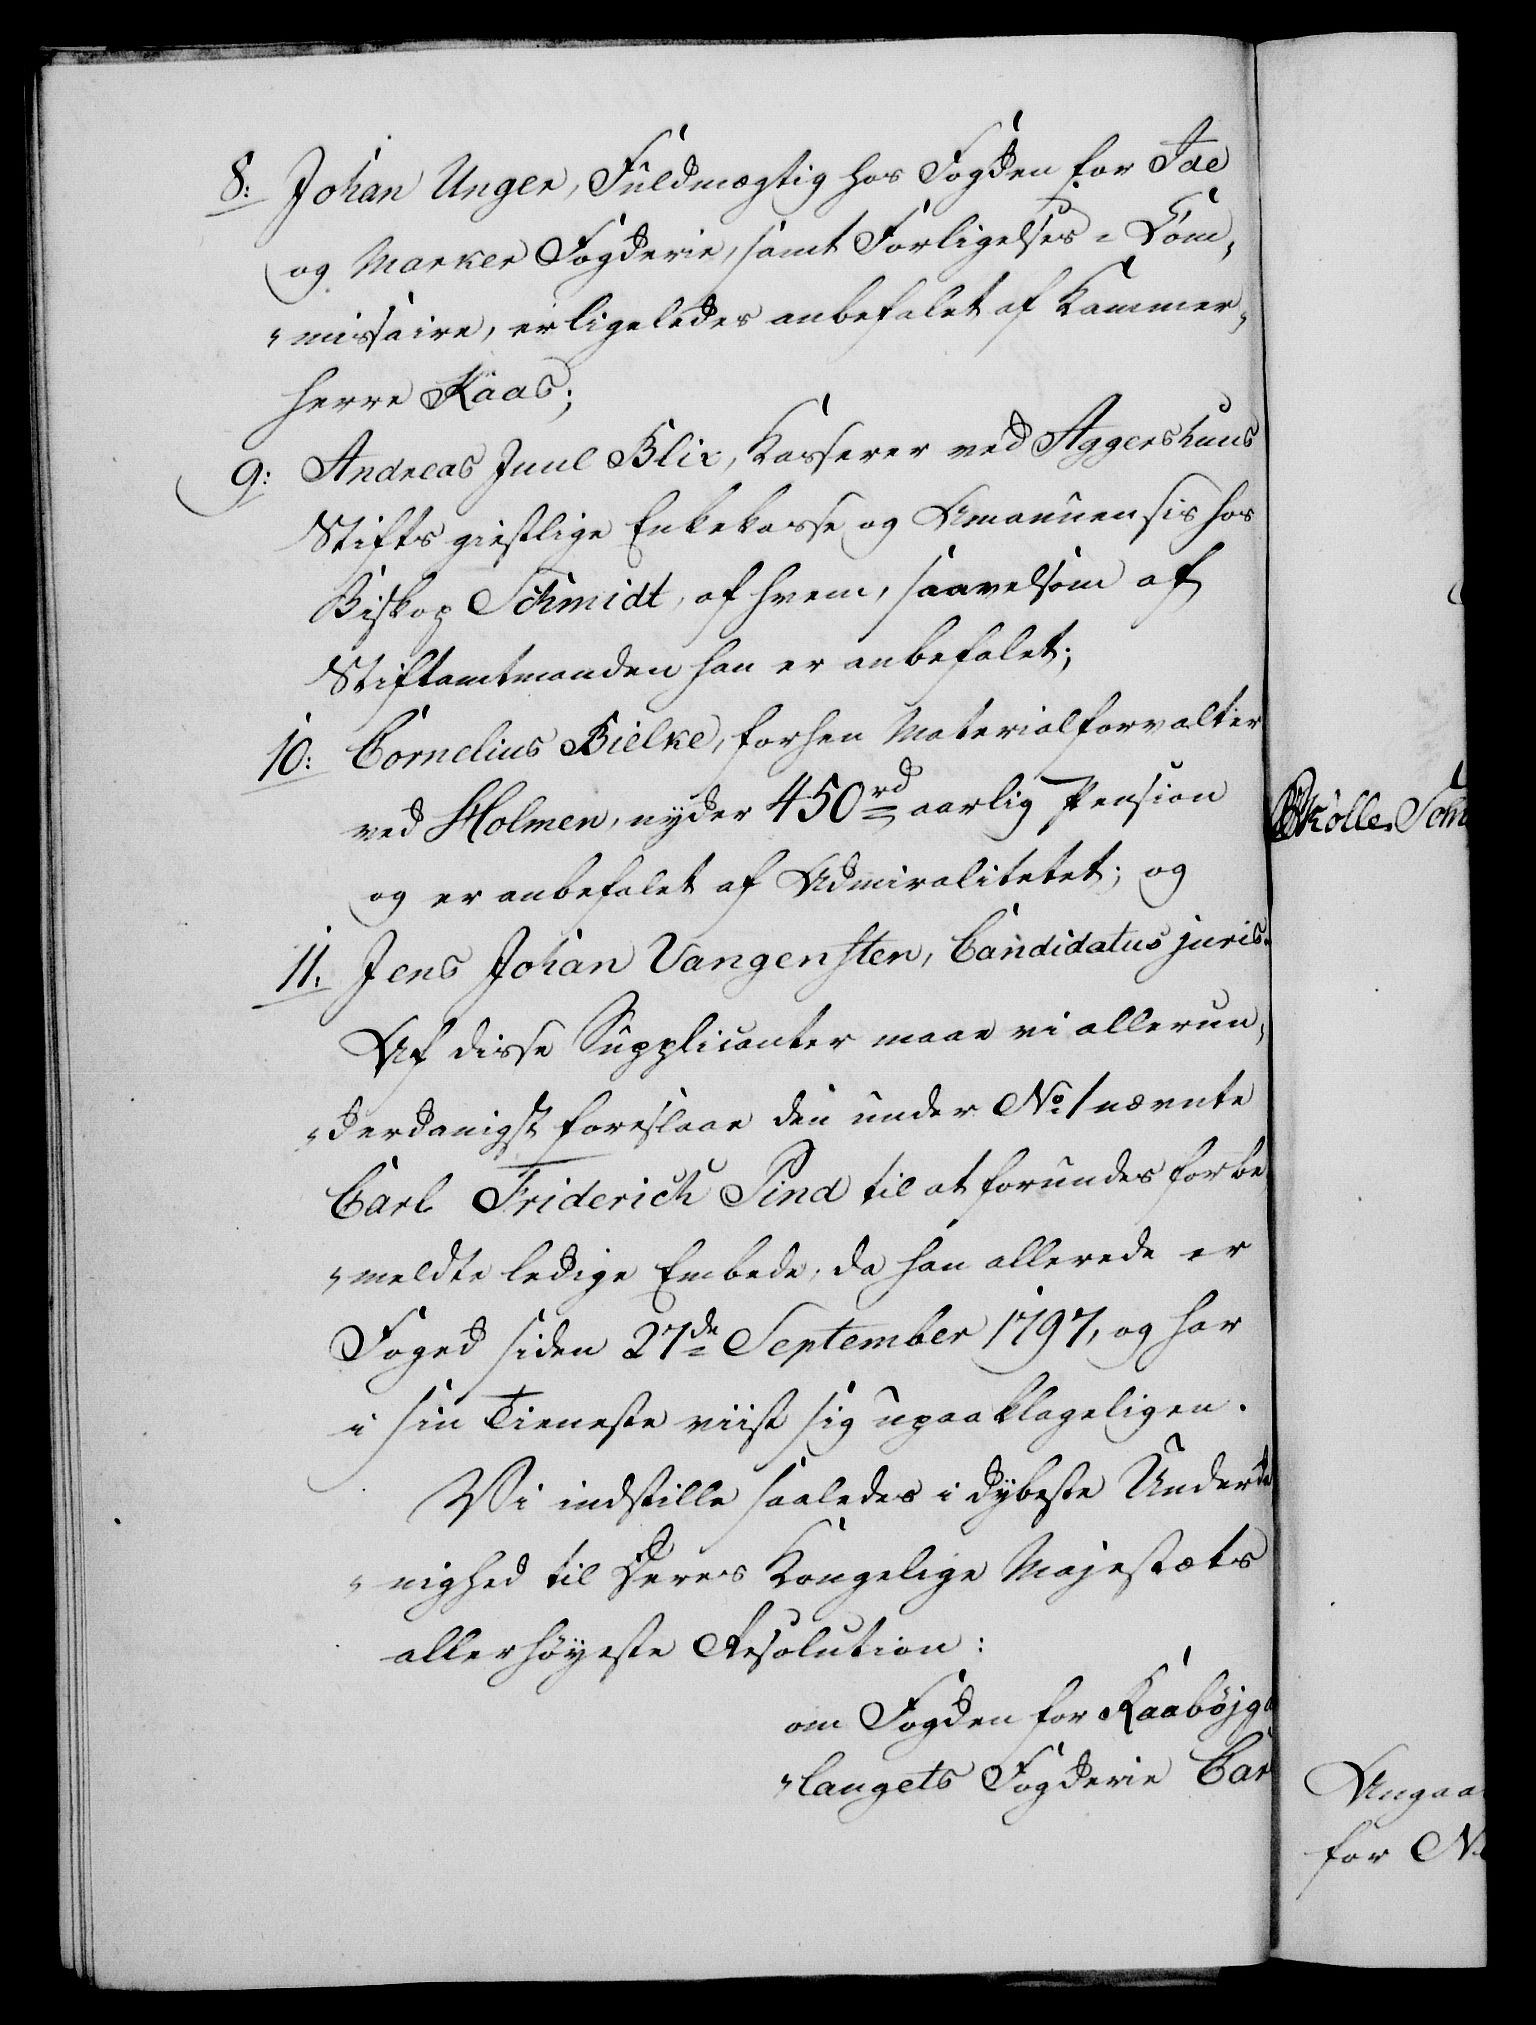 8: Johan Unger, Fuldmægtig hos Fogden for Ide
og Marker Fogderie, samt Forligelses-Com„
„missaire, er ligeledes anbefalet af Kammer„
herre Kaas;
9: Andreas Juul Blix, Kasserer ved Aggershuus
Stifts giestlige Enkekasse og Amanuensis hos
Biskop Schmidt, af hvem, saavelsom af
Stiftamtmanden han er anbefalet;
10: Cornelius Bielke, forhen Materialforvalter
ved Holmen, nyder 450 rd aarlig Pension
og er anbefalet af Admiralitetet; og
11. Jens Johan Vangensten, Candidatus juris.
Af disse Supplicanter maae vi allerun„
„derdanigst foreslaae den under No 1 nævnte
Carl Friderich Pind til at forundes forbe
„meldte ledige Embede, da han allerede er
Foged siden 27de September 1797, og har
i sin Tieneste viist sig upaaklageligen.
Vi indstille saaledes i dybeste Underda
„nighed til Deres Kongelige Majestæts
allerhöyeste Resolution:
om Fogden for Raabøjge
„laugets Fogderie Car
Angaa
for N